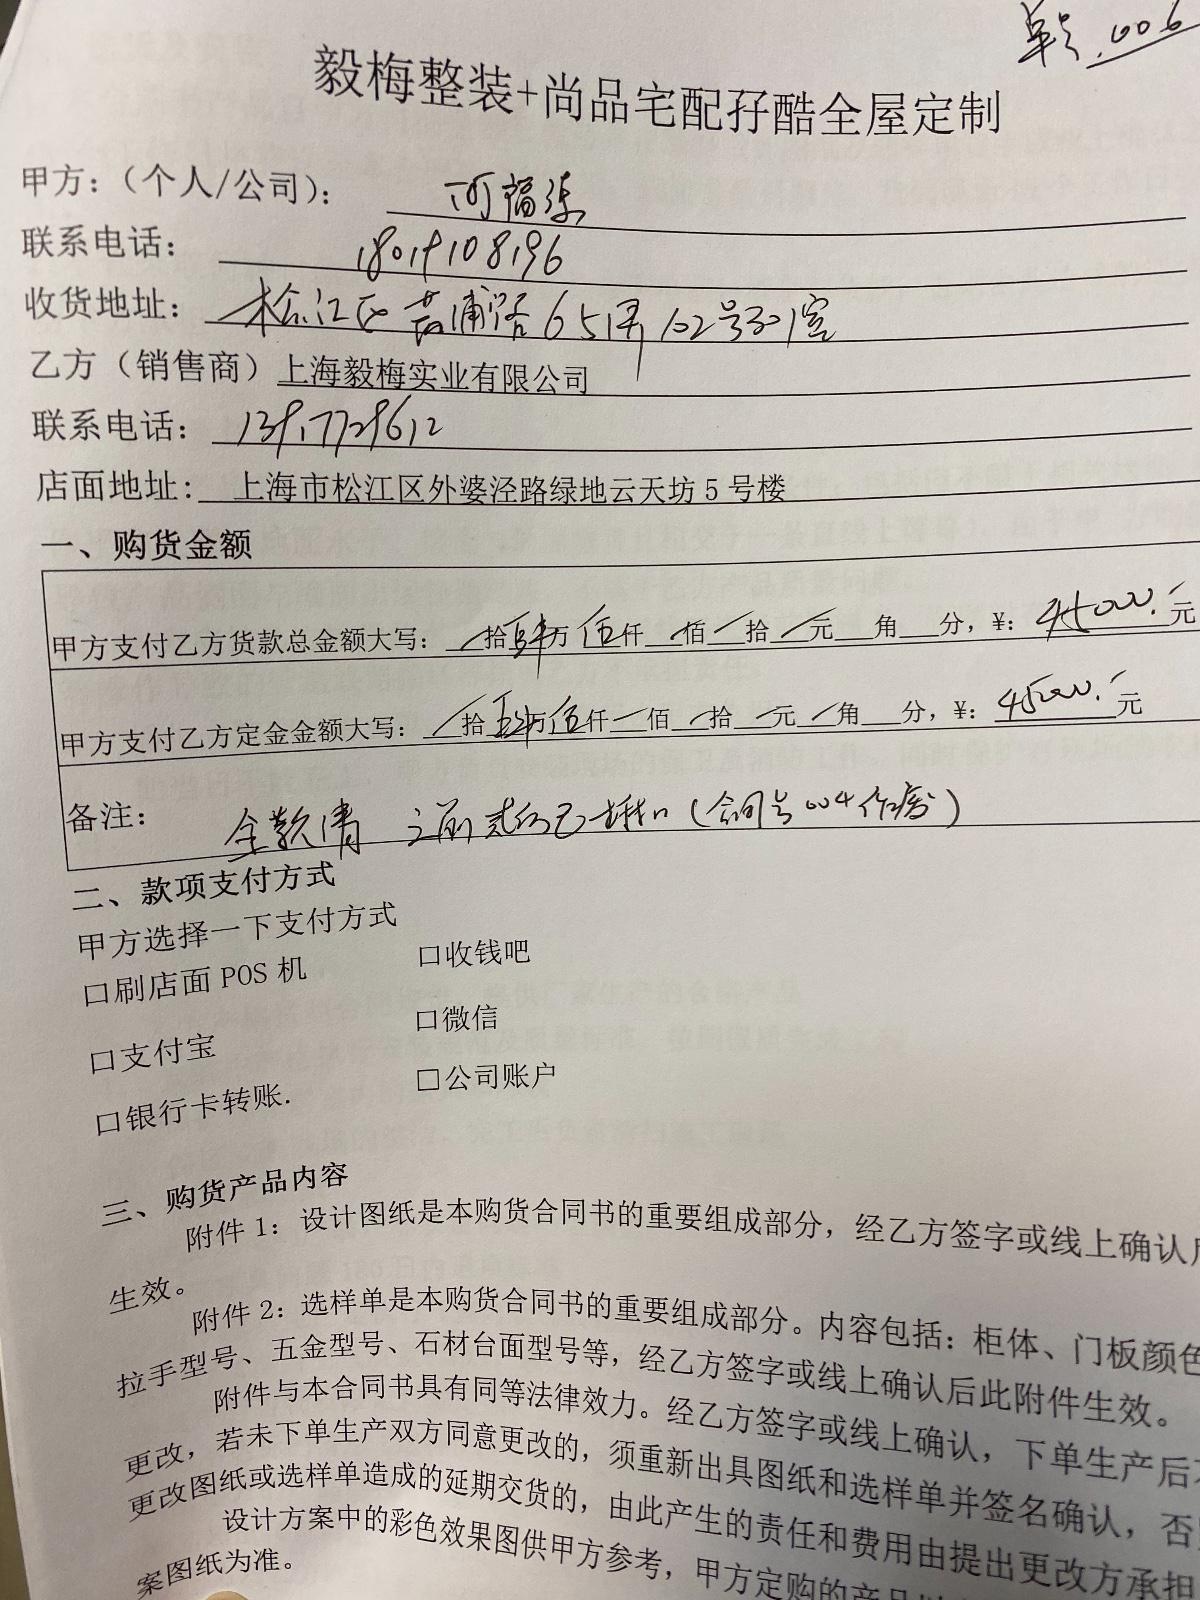 单号.006
毅梅整装+尚品宅配孖酷全屋定制
甲方：（个人/公司）：
联系电话： 18019108196
收货地址： 松江区 浦路651弄102号301室
乙方（销售商）上海毅梅实业有限公司
联系电话： 13917729612
店面地址：上海市松江区外婆泾路绿地云天坊5号楼
一、购货金额
甲方支付乙方货款总金额大写： 拾肆万伍仟 佰 拾 元 角 分，¥：45000.元
甲方支付乙方定金金额大写： 拾肆万伍仟 佰 拾 元 角 分，¥：45000.元
备注： 全款清 之前 已抵扣（合同号004作废）
二、款项支付方式
甲方选择一下支付方式
□刷店面 POS 机 □收钱吧
□支付宝 □微信
□银行卡转账. □公司账户
三、购货产品内容
附件 1：设计图纸是本购货合同书的重要组成部分，经乙方签字或线上确认后
生效。
附件 2：选样单是本购货合同书的重要组成部分。内容包括：柜体、门板颜色
拉手型号、五金型号、石材台面型号等，经乙方签字或线上确认后此附件生效。
附件与本合同书具有同等法律效力。经乙方签字或线上确认，下单生产后
更改，若未下单生产双方同意更改的，须重新出具图纸和选样单并签名确认，否
更改图纸或选样单造成的延期交货的，由此产生的责任和费用由提出更改方承担
设计方案中的彩色效果图供甲方参考，甲方定购的产品
案图纸为准。